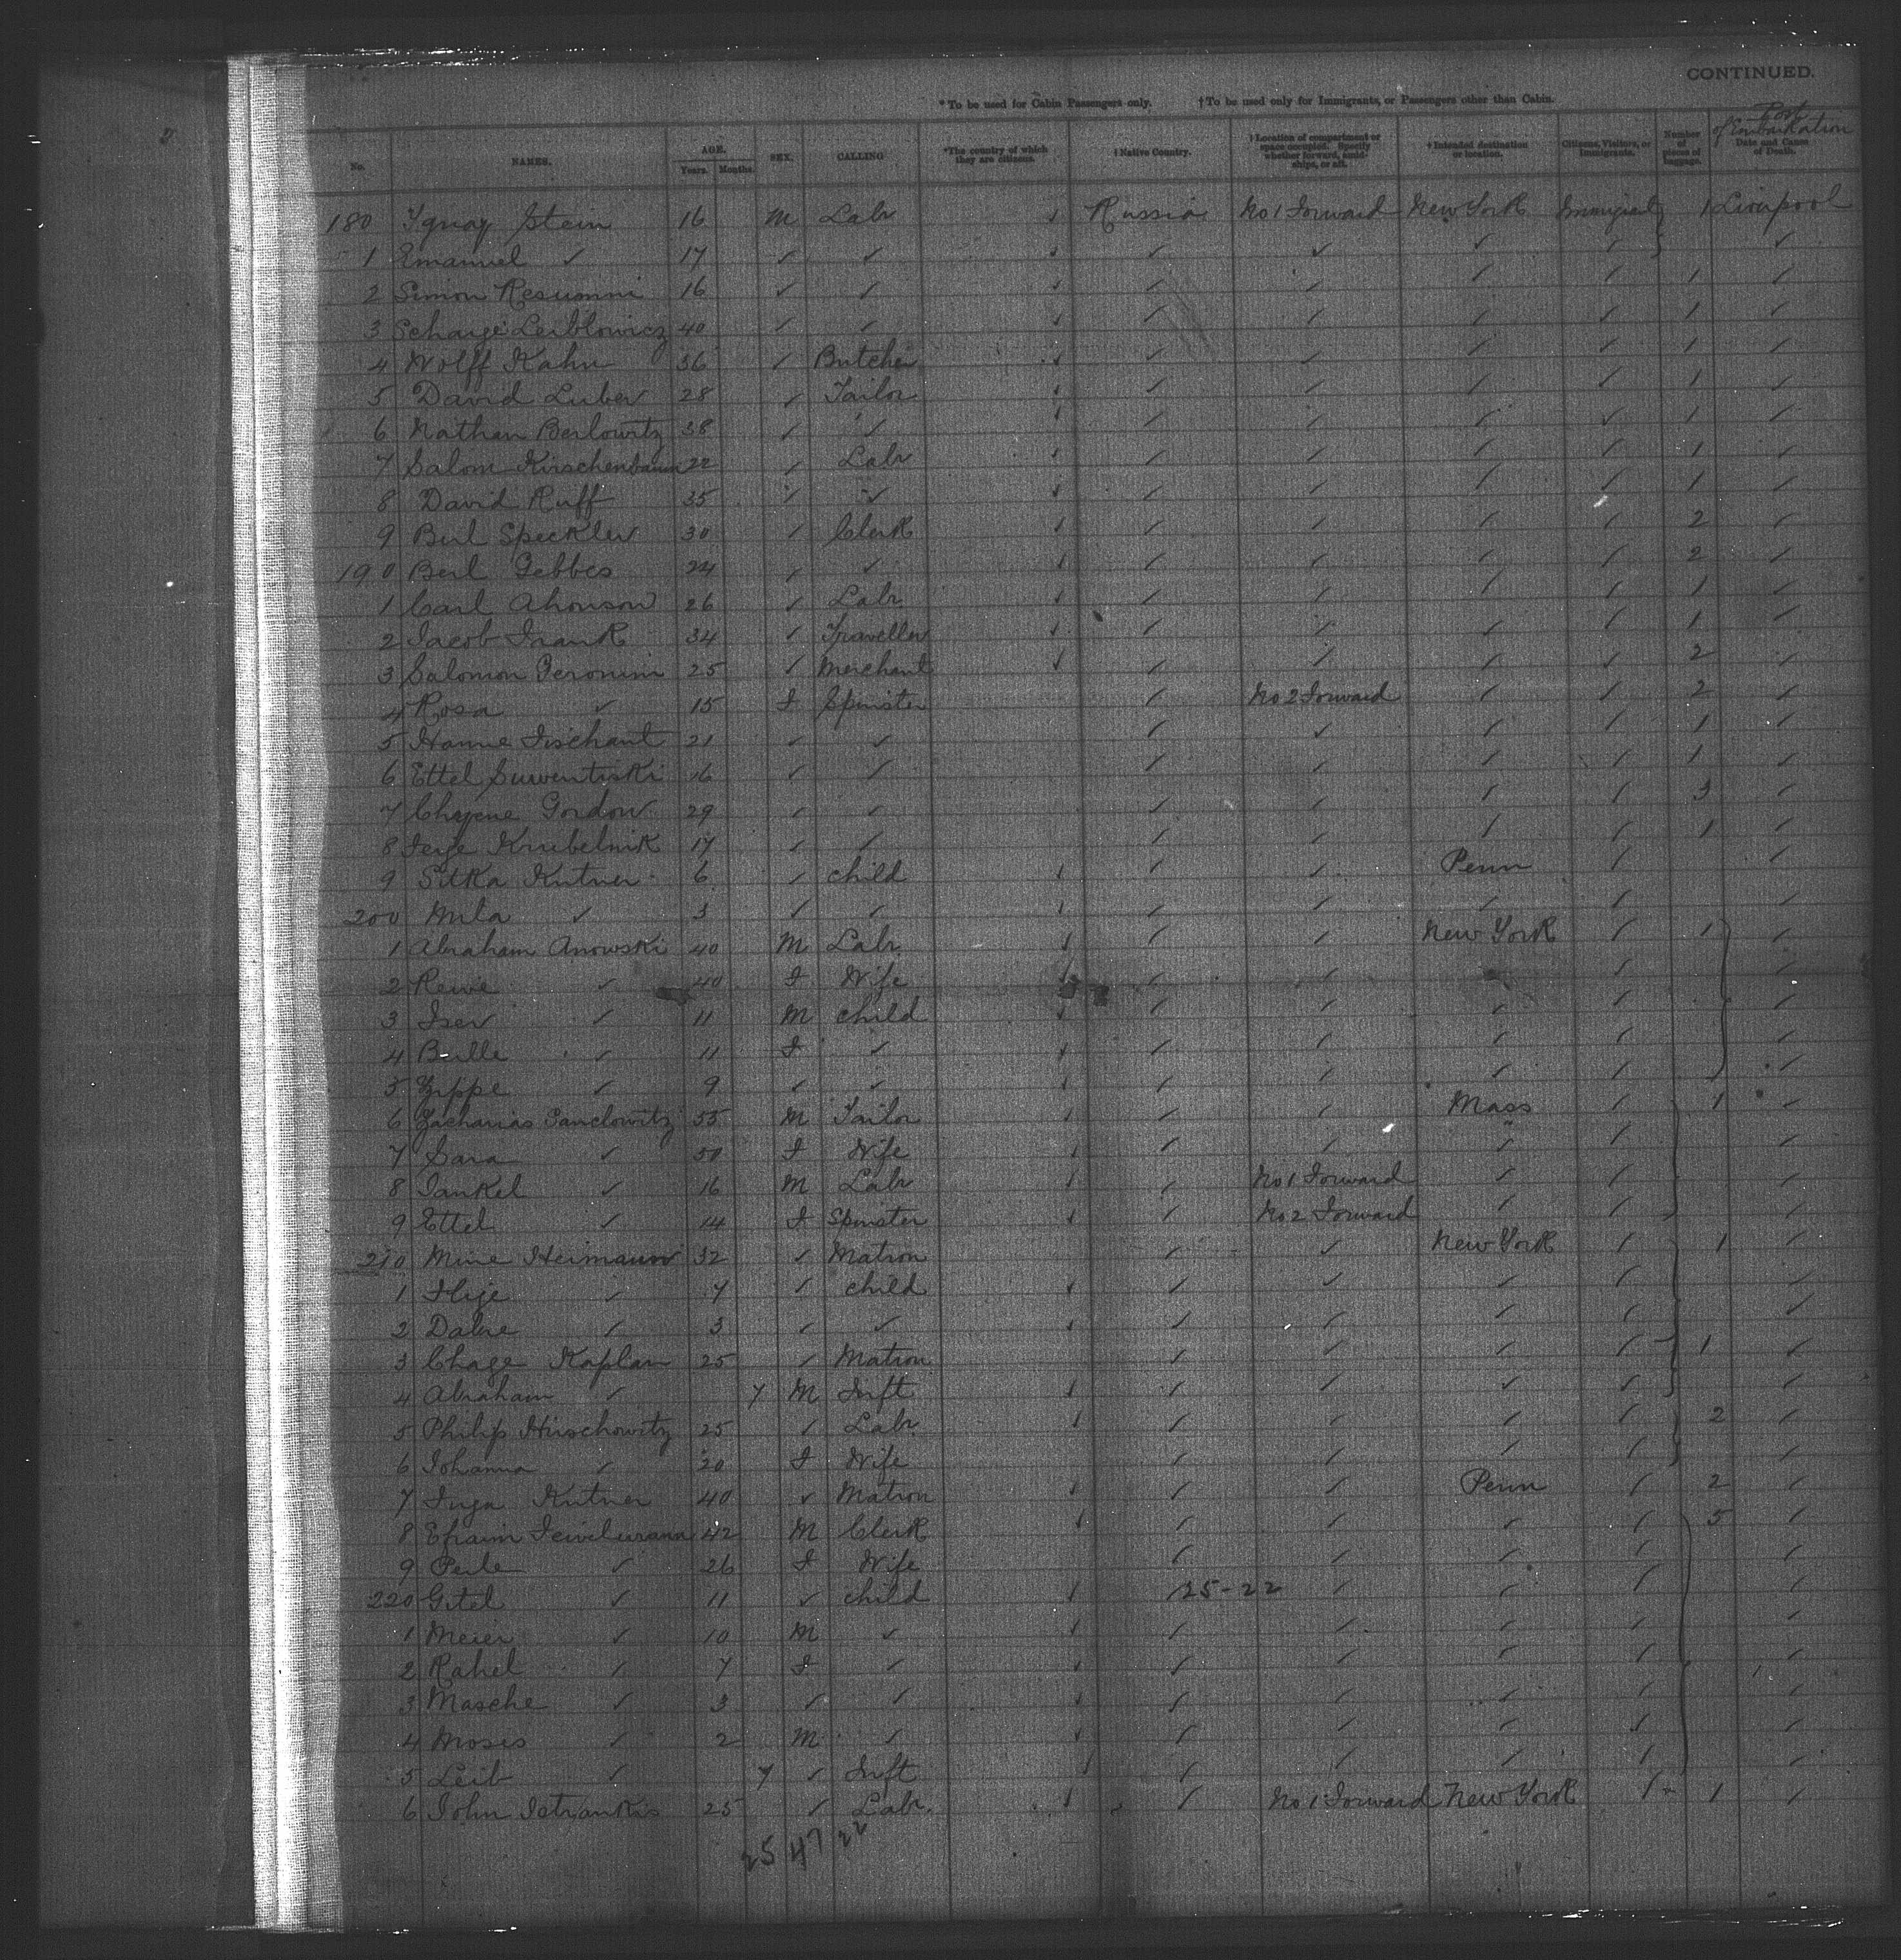 CONTINUED.
*To be used for Cabin Passengers only. †To be used only for Immigrants, or Passengers other than Cabin.
Port of Embarkation
No. NAMES. AGE. Years. Months. SEX. CALLING *The country of which they are citizens. †Native Country. †Location of compartment or space occupied. Specify whether forward, amidships, or aft. †Intended destination or location. Citizens, Visitors, or Immigrants. Number of pieces of luggage. Date and Cause of Death.
180 Ignaz Stein 16 M Labr ✓ Russia No 1 Forward New York Immigrant 1 Liverpool
1 Emanuel ✓ 17 ✓ ✓ ✓ ✓ ✓ ✓ ✓ ✓
2 Simon 16 ✓ ✓ ✓ ✓ ✓ ✓ ✓ 1 ✓
3 Leiblowicz 40 ✓ ✓ ✓ ✓ ✓ ✓ ✓ 1 ✓
4 Wolff Kahn 36 ✓ Butcher ✓ ✓ ✓ ✓ ✓ 1 ✓
5 David Luber 28 ✓ Tailor ✓ ✓ ✓ ✓ ✓ 1 ✓
6 Nathan Berlowitz 38 ✓ ✓ ✓ ✓ ✓ ✓ ✓ 1 ✓
7 Salom Kirschenbaum 22 ✓ Labr ✓ ✓ ✓ ✓ ✓ 1 ✓
8 David Ruff 35 ✓ ✓ ✓ ✓ ✓ ✓ ✓ 1 ✓
9 Berl Speckler 30 ✓ Clerk ✓ ✓ ✓ ✓ ✓ 2 ✓
190 Berl Gebbes 24 ✓ ✓ ✓ ✓ ✓ ✓ ✓ 2 ✓
1 Carl Ahonson 26 ✓ Labr ✓ ✓ ✓ ✓ ✓ 1 ✓
2 Jacob Frank 34 ✓ Traveller ✓ ✓ ✓ ✓ ✓ 1 ✓
3 Salomon Peronim 25 ✓ Merchant ✓ ✓ ✓ ✓ ✓ 2 ✓
4 Rosa ✓ 15 F Spinster ✓ No 2 Forward ✓ ✓ 2 ✓
5 Hanne Fischant 21 ✓ ✓ ✓ ✓ ✓ ✓ 1 ✓
6 Ettel 16 ✓ ✓ ✓ ✓ ✓ ✓ 1 ✓
7 Chajene Gordon 29 ✓ ✓ ✓ ✓ ✓ ✓ 3 ✓
8 Feige 17 ✓ ✓ ✓ ✓ ✓ ✓ 1 ✓
9 Sitka Kutner 6 ✓ child ✓ ✓ ✓ Penn ✓ ✓
200 Mila ✓ 3 ✓ ✓ ✓ ✓ ✓ ✓ ✓ ✓
1 Abraham Anowski 40 M Labr. ✓ ✓ ✓ New York ✓ 1 ✓
2 Rewe ✓ 40 F Wife ✓ ✓ ✓ ✓ ✓
3 Iser ✓ 11 M child ✓ ✓ ✓ ✓ ✓ ✓
4 Beille ✓ 11 F ✓ ✓ ✓ ✓ ✓ ✓ ✓
5 Zippe ✓ 9 ✓ ✓ ✓ ✓ ✓ ✓ ✓ ✓
6 Zacharias Sandowitz 55 M Tailor ✓ ✓ ✓ Mass ✓ 1 ✓
7 Sara ✓ 50 F Wife ✓ ✓ ✓ ✓ ✓ ✓
8 Jankel ✓ 16 M Labr ✓ ✓ No 1 Forward ✓ ✓ ✓
9 Ettel ✓ 14 F Spinster ✓ ✓ No 2 Forward ✓ ✓ ✓
210 Mine Heimanov 32 ✓ Matron ✓ ✓ New York ✓ 1 ✓
1 Flige ✓ 7 ✓ child ✓ ✓ ✓ ✓ ✓ ✓
2 Dabre ✓ 3 ✓ ✓ ✓ ✓ ✓ ✓ ✓ ✓
3 Chage Kaplan 25 ✓ Matron ✓ ✓ ✓ ✓ 1 ✓
4 Abraham ✓ 7 M Inft ✓ ✓ ✓ ✓ ✓ ✓
5 Philip Hirschowitz 25 ✓ Labr. ✓ ✓ ✓ ✓ ✓ 2 ✓
6 Johanna ✓ 20 F Wife ✓ ✓ ✓ ✓ ✓
7 Inga Kutner 40 ✓ Matron ✓ ✓ ✓ Penn ✓ 2 ✓
8 Efraim 42 M Clerk ✓ ✓ ✓ ✓ ✓ 5 ✓
9 Perle ✓ 26 F Wife ✓ ✓ ✓ ✓ ✓
220 Gitel ✓ 11 ✓ child ✓ ✓ 25-22 ✓ ✓ ✓ ✓
1 Meier ✓ 10 M ✓ ✓ ✓ ✓ ✓ ✓ ✓
2 Rahel ✓ 7 F ✓ ✓ ✓ ✓ ✓ ✓
3 Masche ✓ 3 ✓ ✓ ✓ ✓ ✓ ✓ ✓ ✓
4 Moses ✓ 2 M ✓ ✓ ✓ ✓ ✓ ✓
5 Leib ✓ 7 ✓ Inft ✓ ✓ ✓ ✓ ✓ ✓
6 John Istrankis 25 ✓ Labr. ✓ ✓ No 1 Forward New York ✓ 1 ✓
25 47 22